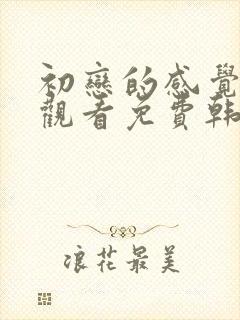 初戀的感覺
觀看免費韩
浪花最美